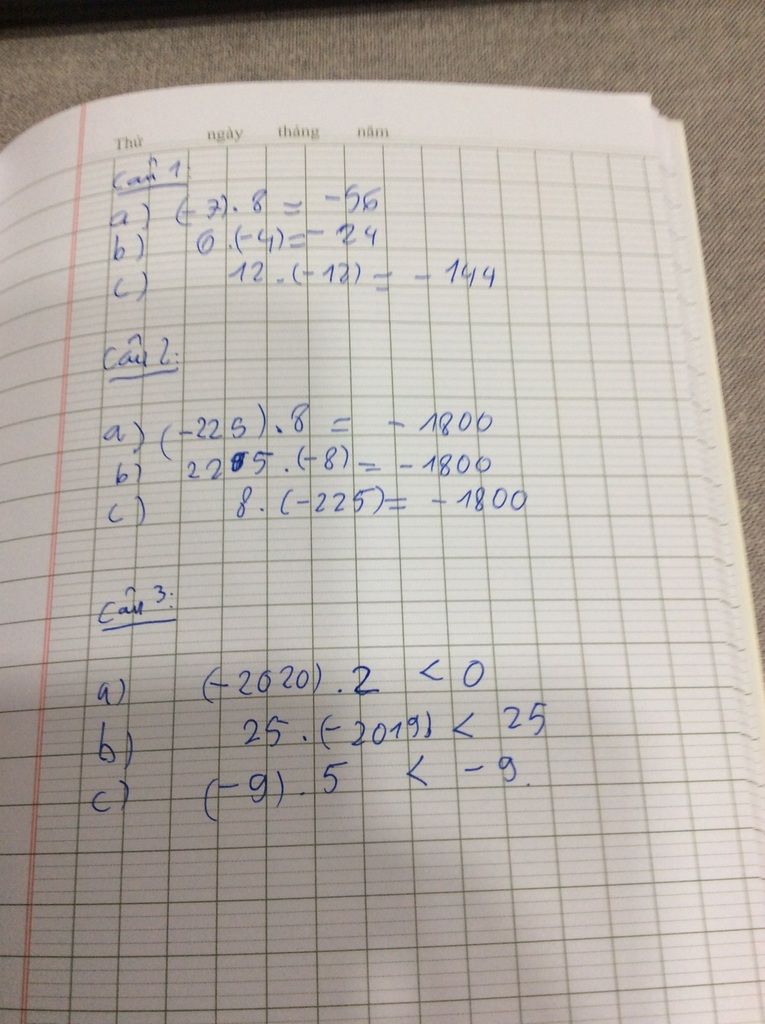 Thứ ngày tháng năm
Câu 1:
a) (-7) . 8 = -56
b) 6 . (-4) = - 24
c) 12 . (-12) = - 144
Câu 2:
a) (-225) . 8 = - 1800
b) 225 . (-8) = - 1800
c) 8 . (-225) = - 1800
Câu 3:
a) (-2020) . 2 < 0
b) 25 . (-2019) < 25
c) (-9) . 5 < - 9.